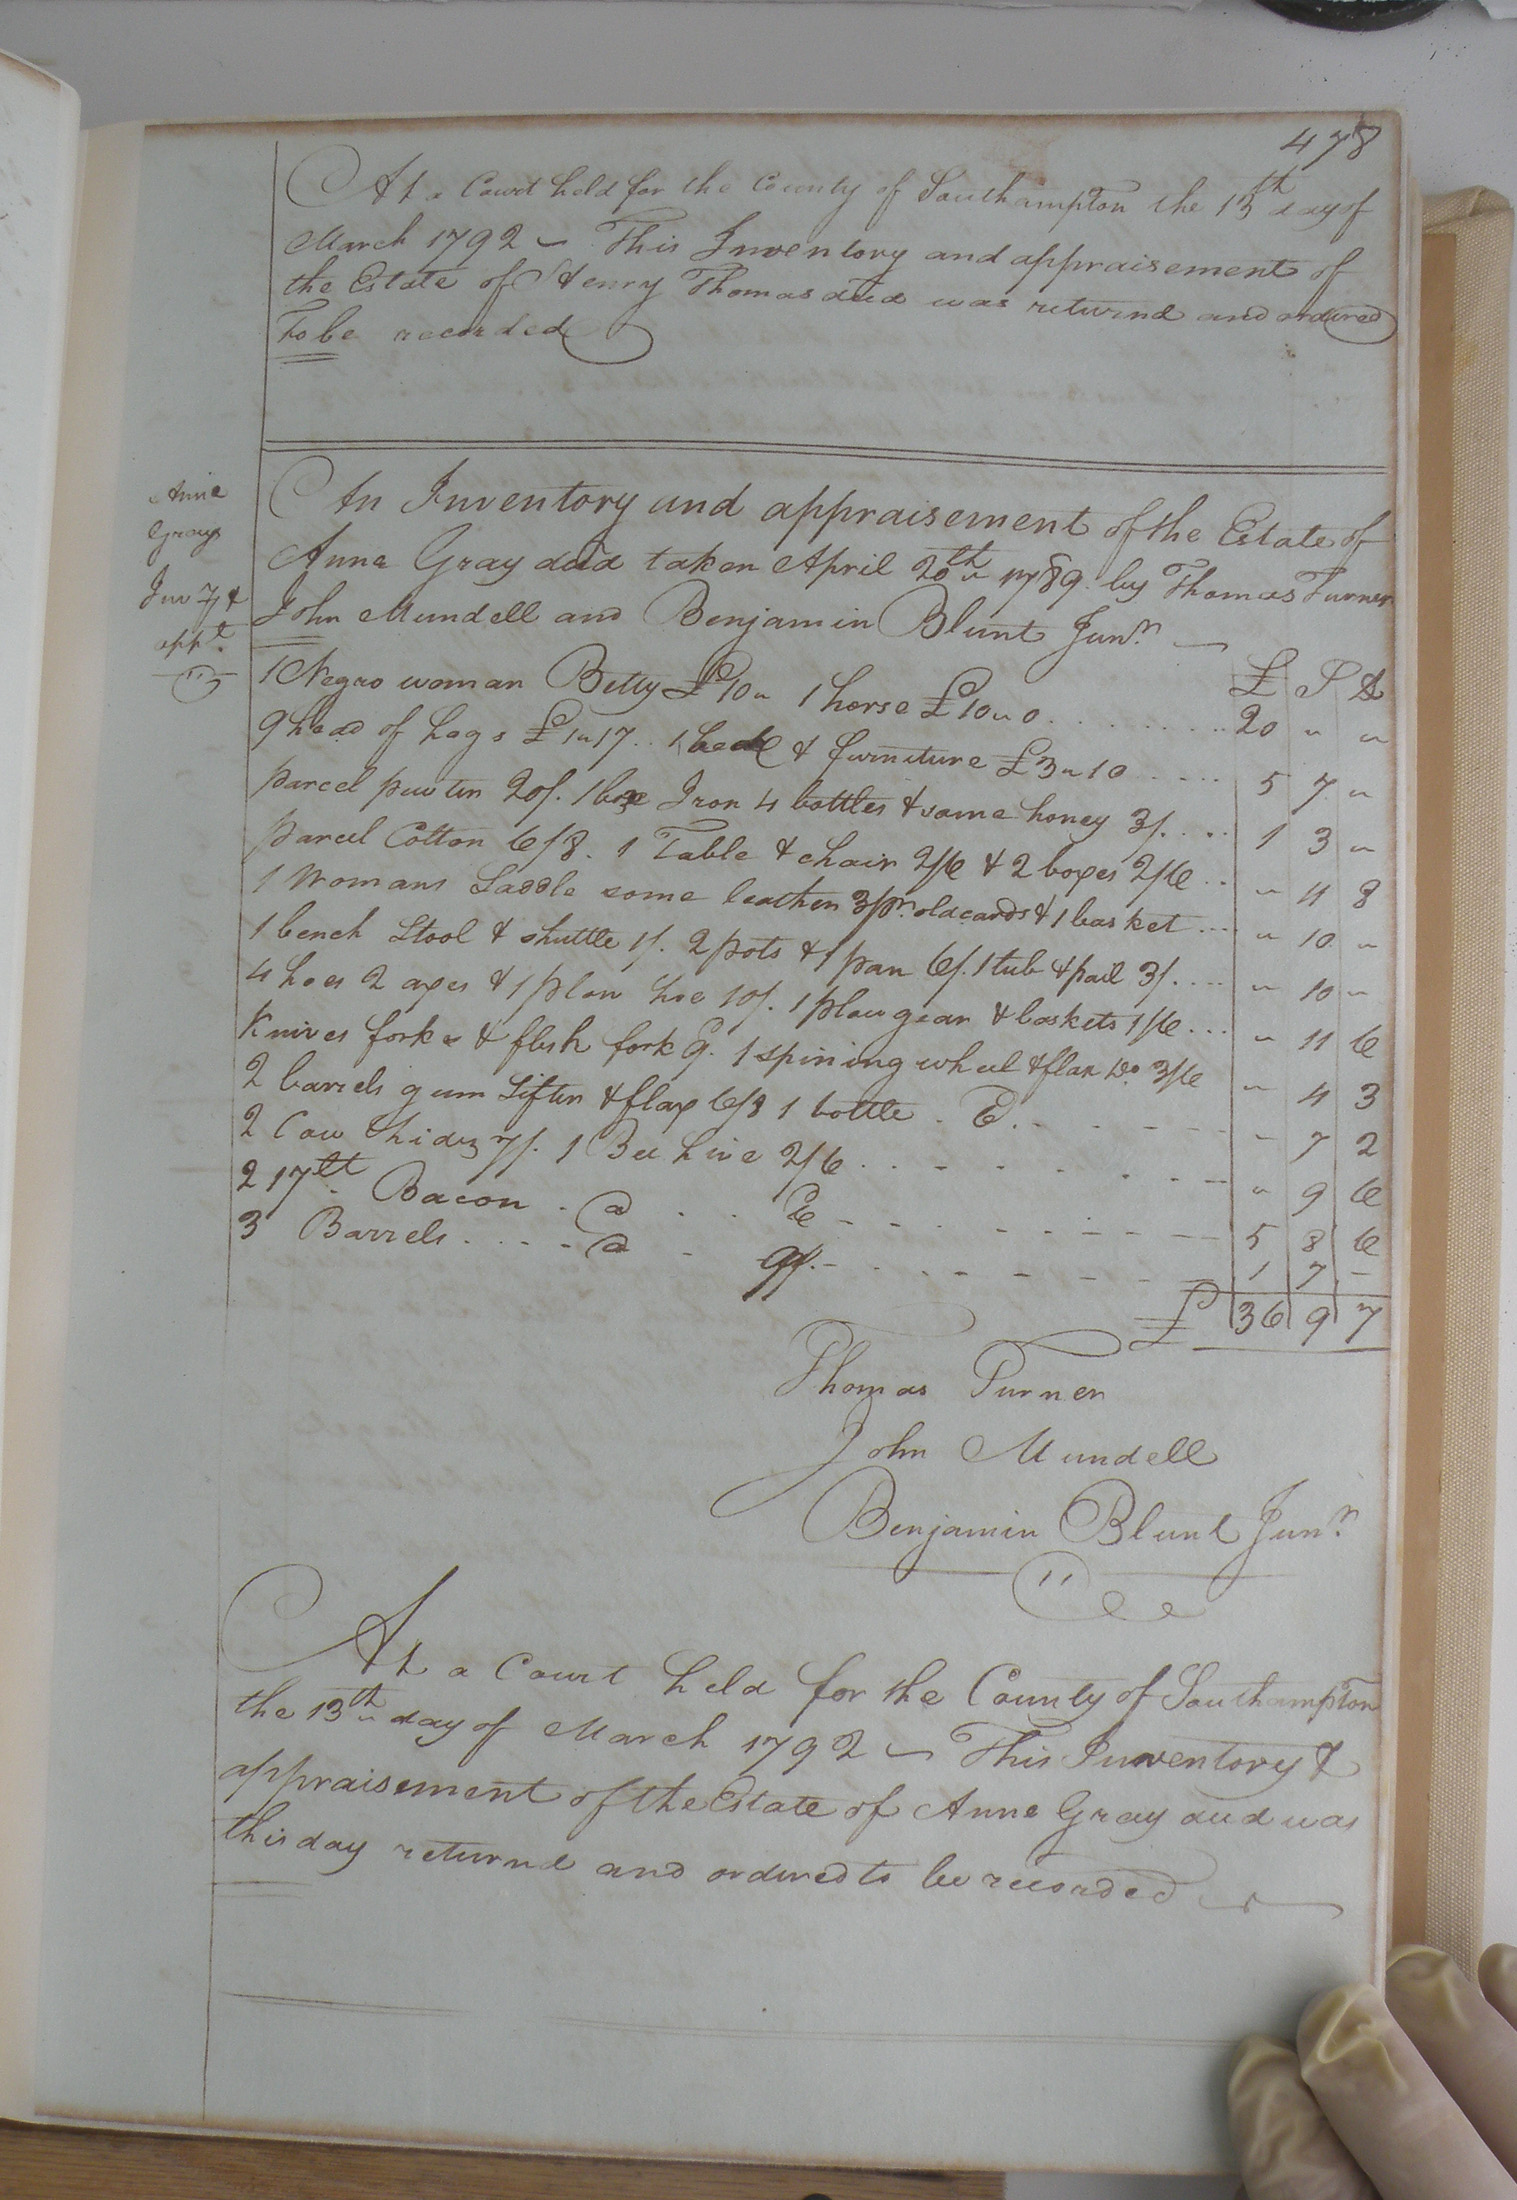 478
At a Court held for the County of Southampton the 13th day of
March 1792 ~ This Inventory and appraisement of
the Estate of Henry Thomas decd was returnd and ordered
To be recorded
Anne
Grays
Invy &
appt.
An Inventory and appraisement of the Estate of
Anne Gray decd taken April 20th 1789 by Thomas Turner
John Mundell and Benjamin Blunt Junr.
£ S d
1 Negro woman Betty £10 " 1 horse £10 " 0 ........ 20 " "
9 head of hogs £1 " 17 .. 1 bed & furniture £3 " 10 ..... 5 7 "
parcel pewter 20/. 1 box Iron 4 bottles & some honey 3/. ... 1 3 "
parcel Cotton 6/8. 1 Table & chair 2/6 & 2 boxes 2/6 .. " 11 8
1 Womans Saddle some leather 3 pr. old cards & 1 basket ... " 10 "
1 bench Stool & shuttle 1/. 2 pots & 1 pan 6/. 1 tub & pail 3/. .... " 10 "
4 hoes 2 axes & 1 plow hoe 10/. 1 plow gear & baskets 1/6 ... " 11 6
Knives forks & flesh fork 9. 1 spining wheel & flax Do. 3/6 " 4 3
2 barrels gum Sifter & flax 6/8 1 bottle . 6. . . . . . " 7 2
2 Cow hides 7/. 1 Bee hive 2/6 . . . . . . . . " 9 6
217 lt. Bacon . @ . . 6 . . . . . . . 5 8 6
3 Barrels .... @ . 9/. . . . . . . . 1 7 -
£ 36 9 7
Thomas Turner
John Mundell
Benjamin Blunt Junr.
At a Court held for the County of Southampton
the 13th day of March 1792 ~ This Inventory &
appraisement of the Estate of Anne Gray decd was
this day returnd and ordered to be recorded